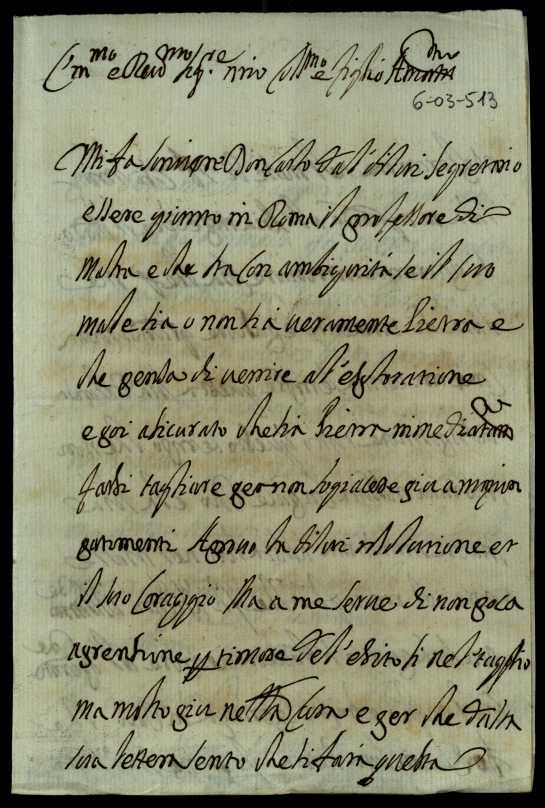 Ill.mo e Rev.mo Sig.re mio Coll.mo e figlio Amat.mo
6-03-513
Mi fa scrivere Don Carlo dal di lui Segretario
essere giunto in Roma il professore di
Malta e che sta con ambiguità se il suo
male sia o non sia veramente Pietra e
che pensa di venire al'esploratione
e poi asicurato che sia Pietra
farsi tagliare per non sogiacere più a magiori
patimenti Aprovo la di lui risolutione et
il suo Coraggio Ma a me serve di non poca
aprentione p timore del'esito sì nel taglio
ma molto più nella Cura e per che dalla
sua lettera sento che si farà questa